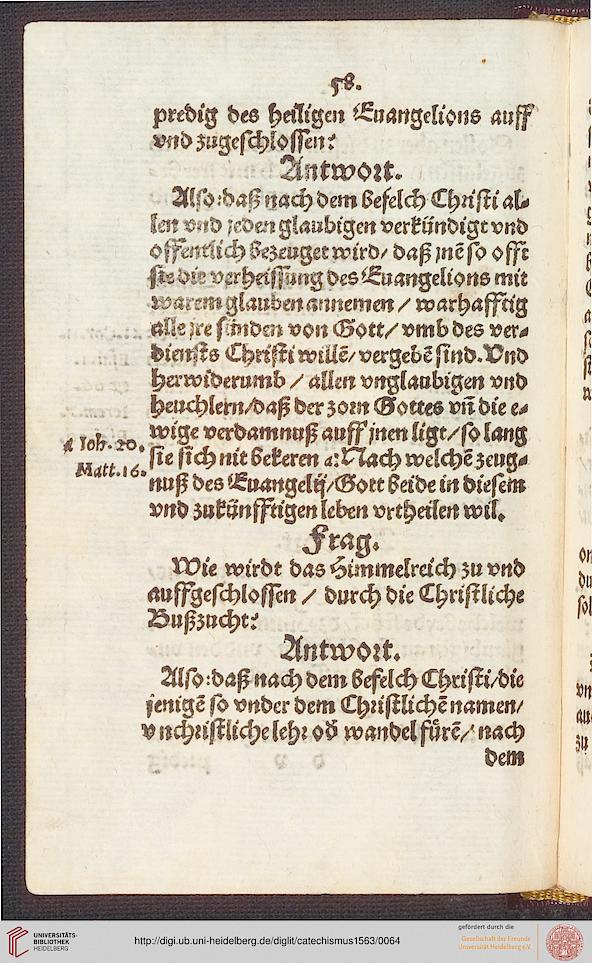 58.
predig des heiligen Euangelions auff
vnd zugeschlossen?
Antwort.
Also: daß nach dem befelch Christi al-
len vnd jeden glaubigen verkündigt vnd
offentlich bezeuget wird / daß jnē so offt
sie die verheissung des Euangelions mit
warem glauben annemen / warhafftig
alle jre sünden von Gott / vmb des ver-
diensts Christi willē / vergebē sind. Vnd
herwiderumb / allen vnglaubigen vnd
heuchlern / daß der zorn Gottes vn̄ die e-
wige verdamnuß auff jnen ligt / so lang
sie sich nit bekeren a: Nach welchē zeug-
nuß des Euangelij / Gott beide in diesem
vnd zukünfftigen leben vrtheilen wil.
a Joh. 20.
Matt. 16.
Frag.
Wie wirdt das Himmelreich zu vnd
auffgeschlossen / durch die Christliche
Bußzucht?
Antwort.
Also: daß nach dem befelch Christi / die
jenigē so vnder dem Christlichē namen /
vnchristliche lehr od̄ wandel fürē / nach
dem
UNIVERSITÄTS-
BIBLIOTHEK
HEIDELBERG
http://digi.ub.uni-heidelberg.de/diglit/catechismus1563/0064
gefördert durch die
Gesellschaft der Freunde
Universität Heidelberg e.V.